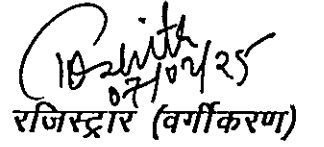 07/02/25
रजिस्ट्रार (वर्गीकरण)